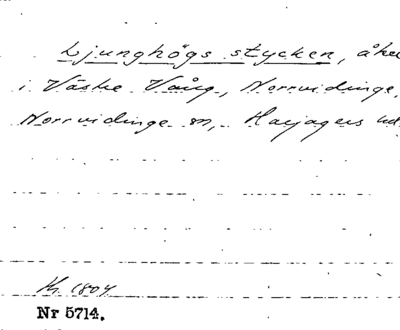 Ljunghögs stycken, åke
i Västre Vång, Norrvidinge,
Norrvidinge sn, Harjagers hd
Kr. 1804
Nr 5714.